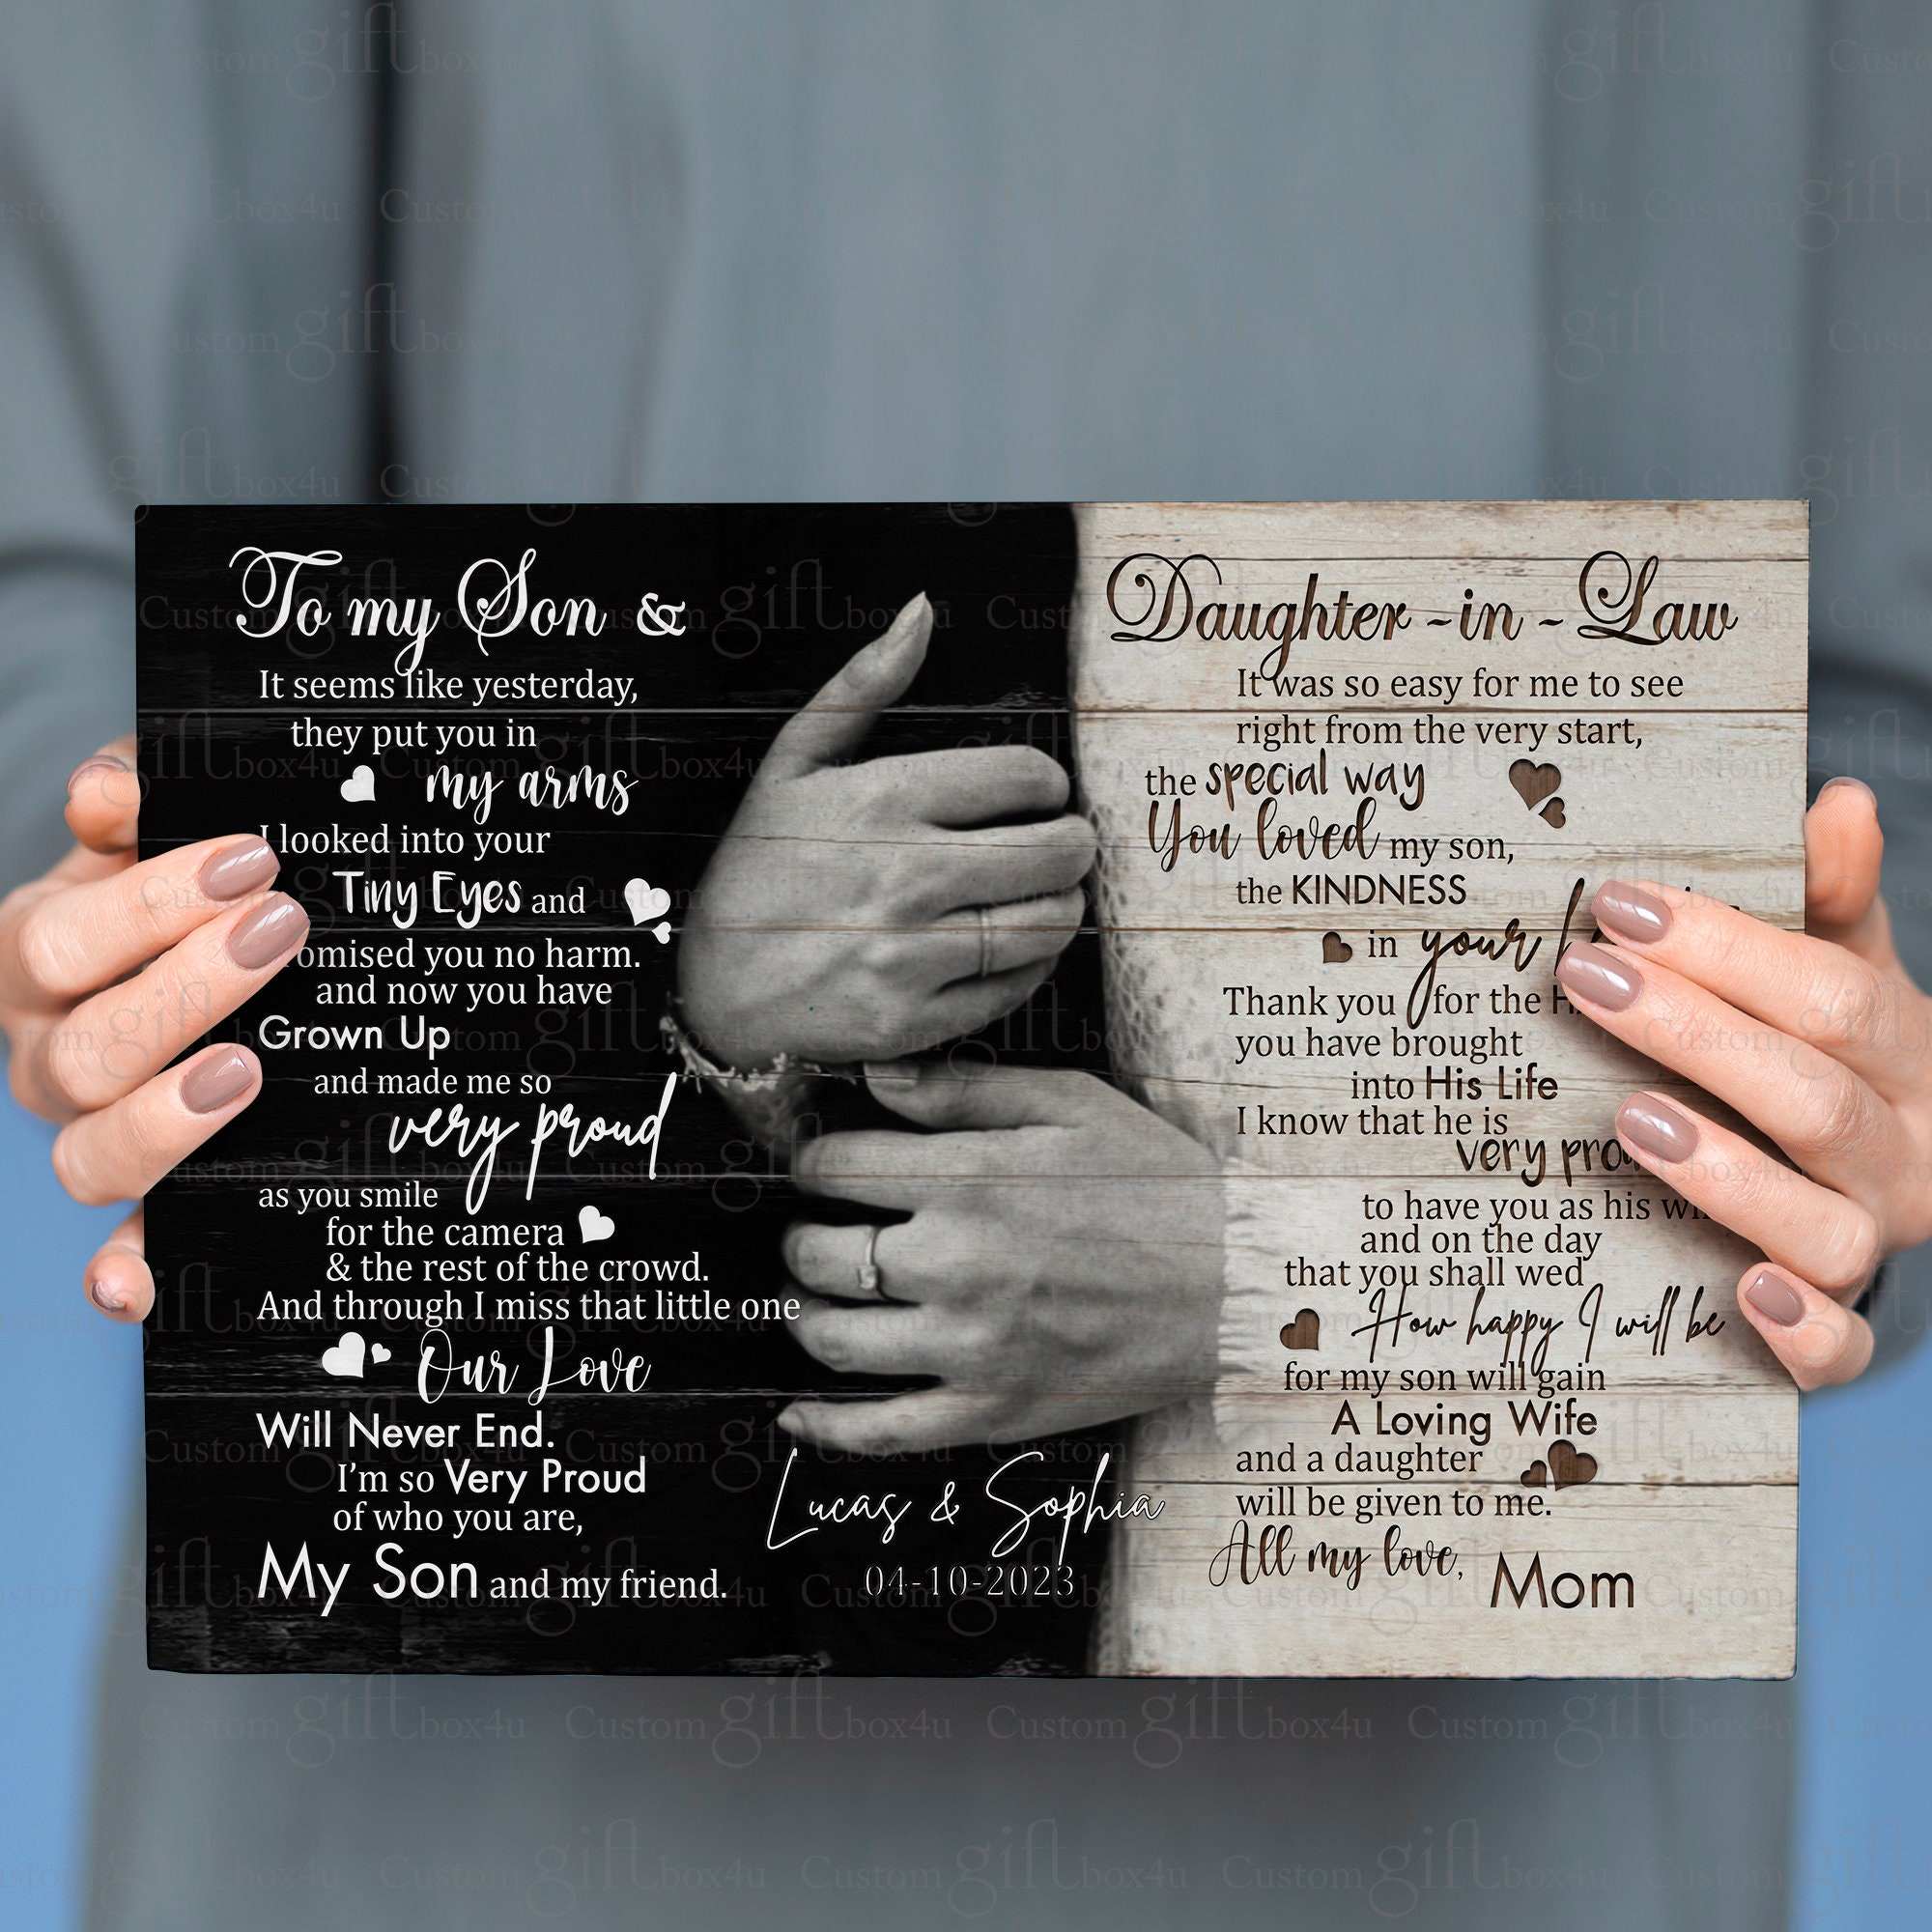 To my Son &
It seems like yesterday,
they put you in
my arms
I looked into your
Tiny Eyes and
you no harm.
and now you have
Grown Up
and made me so
very proud
as you smile
for the camera
& the rest of the crowd.
And through I miss that little one
Our Love
Will Never End.
I'm so Very Proud
of who you are,
My Son and my friend.
Daughter-in-Law
It was so easy for me to see
right from the very start,
the special way
You loved my son,
the KINDNESS
in your
Thank you for the
you have brought
into His Life
I know that he is
very
to have you as his
and on the day
that you shall wed
How happy I will be
for my son will gain
A Loving Wife
and a daughter
will be given to me.
All my love, Mom
Lucas & Sophia
04-10-2023
Custom giftbox4u